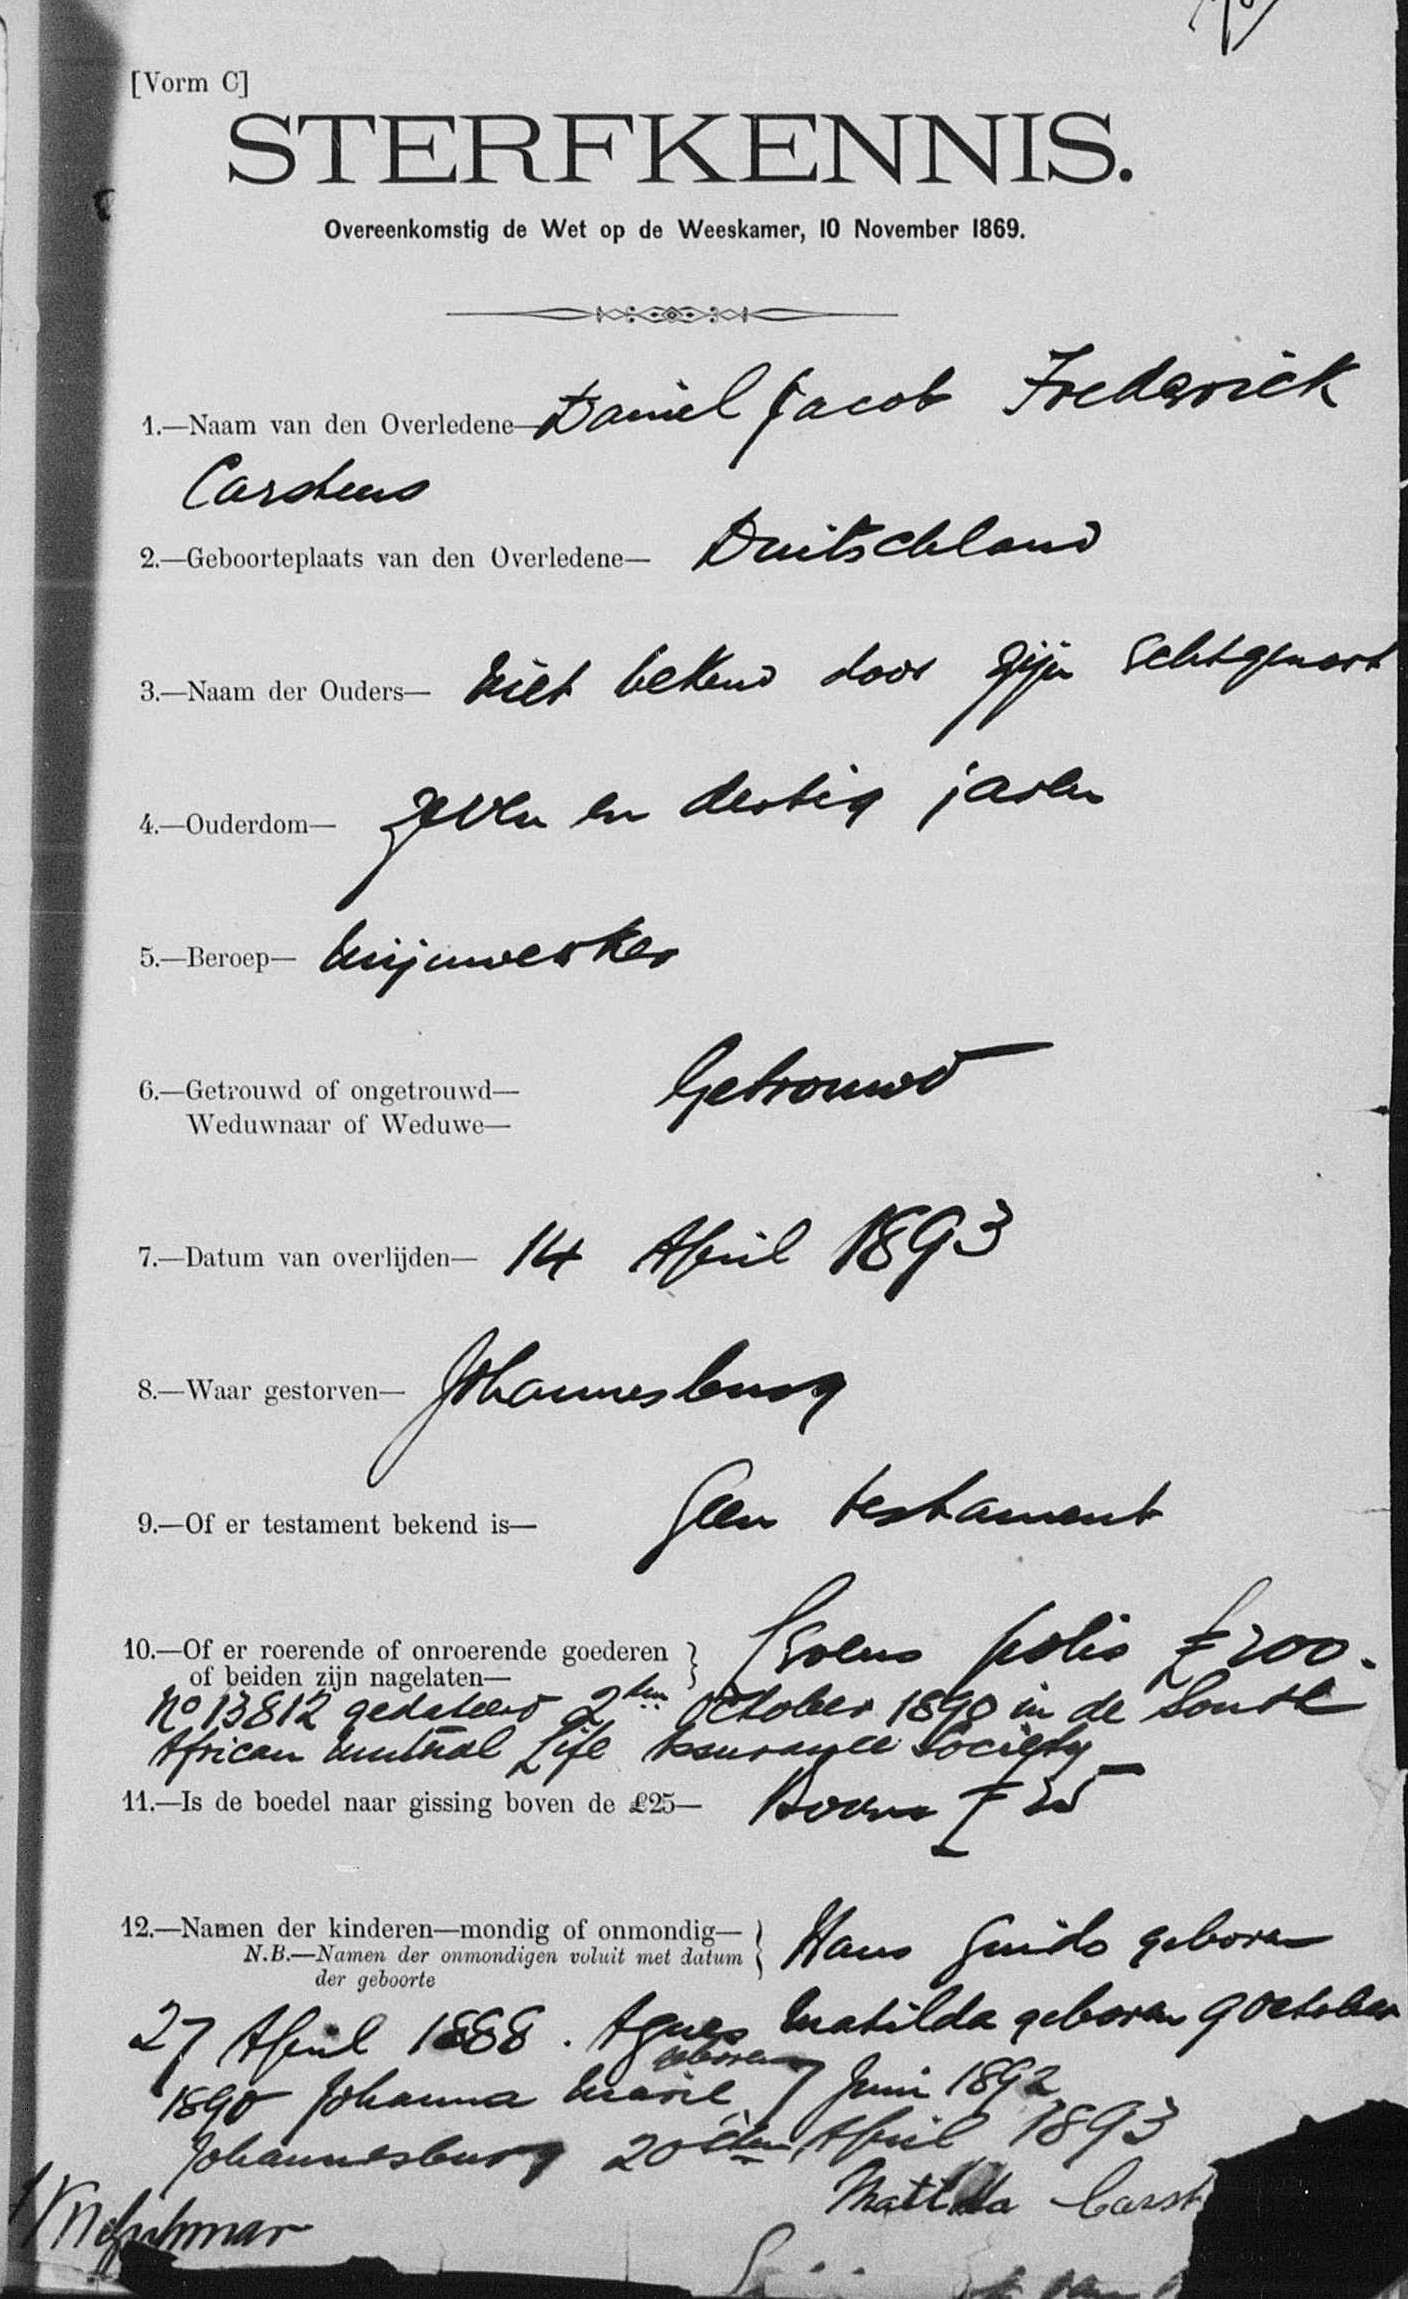 [Vorm C]
STERFKENNIS.
Overeenkomstig de Wet op de Weeskamer, 10 November 1869.
1.—Naam van den Overledene— Daniel Jacob Frederick
Carstens
2.—Geboorteplaats van den Overledene— Duitschland
3.—Naam der Ouders— niet bekend door zijn Echtgenoot
4.—Ouderdom— Zeven en dertig jaren
5.—Beroep— Mijnwerker
6.—Getrouwd of ongetrouwd— Getrouwd
Weduwnaar of Weduwe—
7.—Datum van overlijden— 14 April 1893
8.—Waar gestorven— Johannesburg
9.—Of er testament bekend is— Geen testament
10.—Of er roerende of onroerende goederen } Levens polis £200.
of beiden zijn nagelaten—
No 13812 gedateerd 2den October 1890 in de South
African Mutual Life Assurance Society
11.—Is de boedel naar gissing boven de £25— Boven £25
12.—Namen der kinderen—mondig of onmondig— } Hans Guido geboren
N.B.—Namen der onmondigen voluit met datum
der geboorte
27 April 1888. Agnes Matilda geboren 9 October
1890 Johanna Marie geboren 7 Juni 1892
Johannesburg 20sten April 1893
Matilda Carst